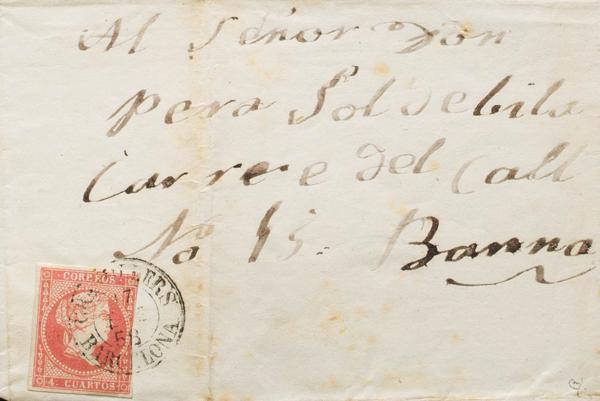 Al Señor Don
pera Soldebila
Carrere del Call
No 15. Banna
CORREOS
4. CUARTOS
BARCELONA